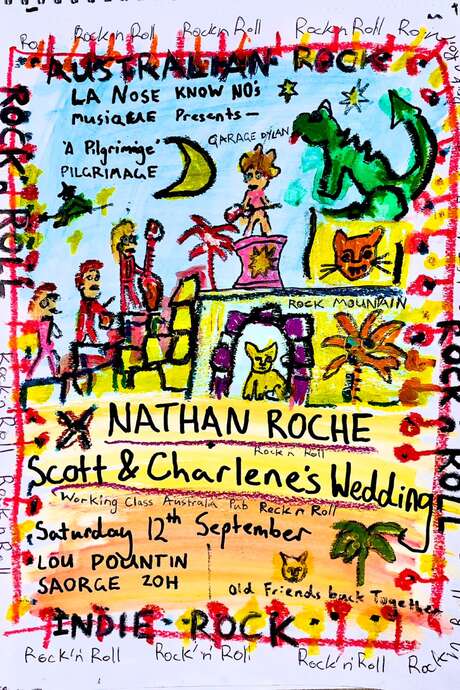 Rock n Roll
Rock n Roll
Rock n Roll
Rock n
AUSTRALIAN ROCK
LA NOSE KNOW NO's
musiqeae Presents –
GARAGE DYLAN
'A Pilgrimage'
PILGRIMAGE
ROCK n ROLL
ROCK MOUNTAIN
ROCK n ROLL
NATHAN ROCHE
Rock n Roll
Scott & Charlene's Wedding
Working Class Australia Pub Rock n Roll
Saturday 12th September
LOU POUNTIN
SAORGE 20H
Old Friends back Together
INDIE ROCK
Rock n Roll
Rock n Roll
Rock'n'Roll
Rock'n'Roll
Rock'n'Roll
Rock